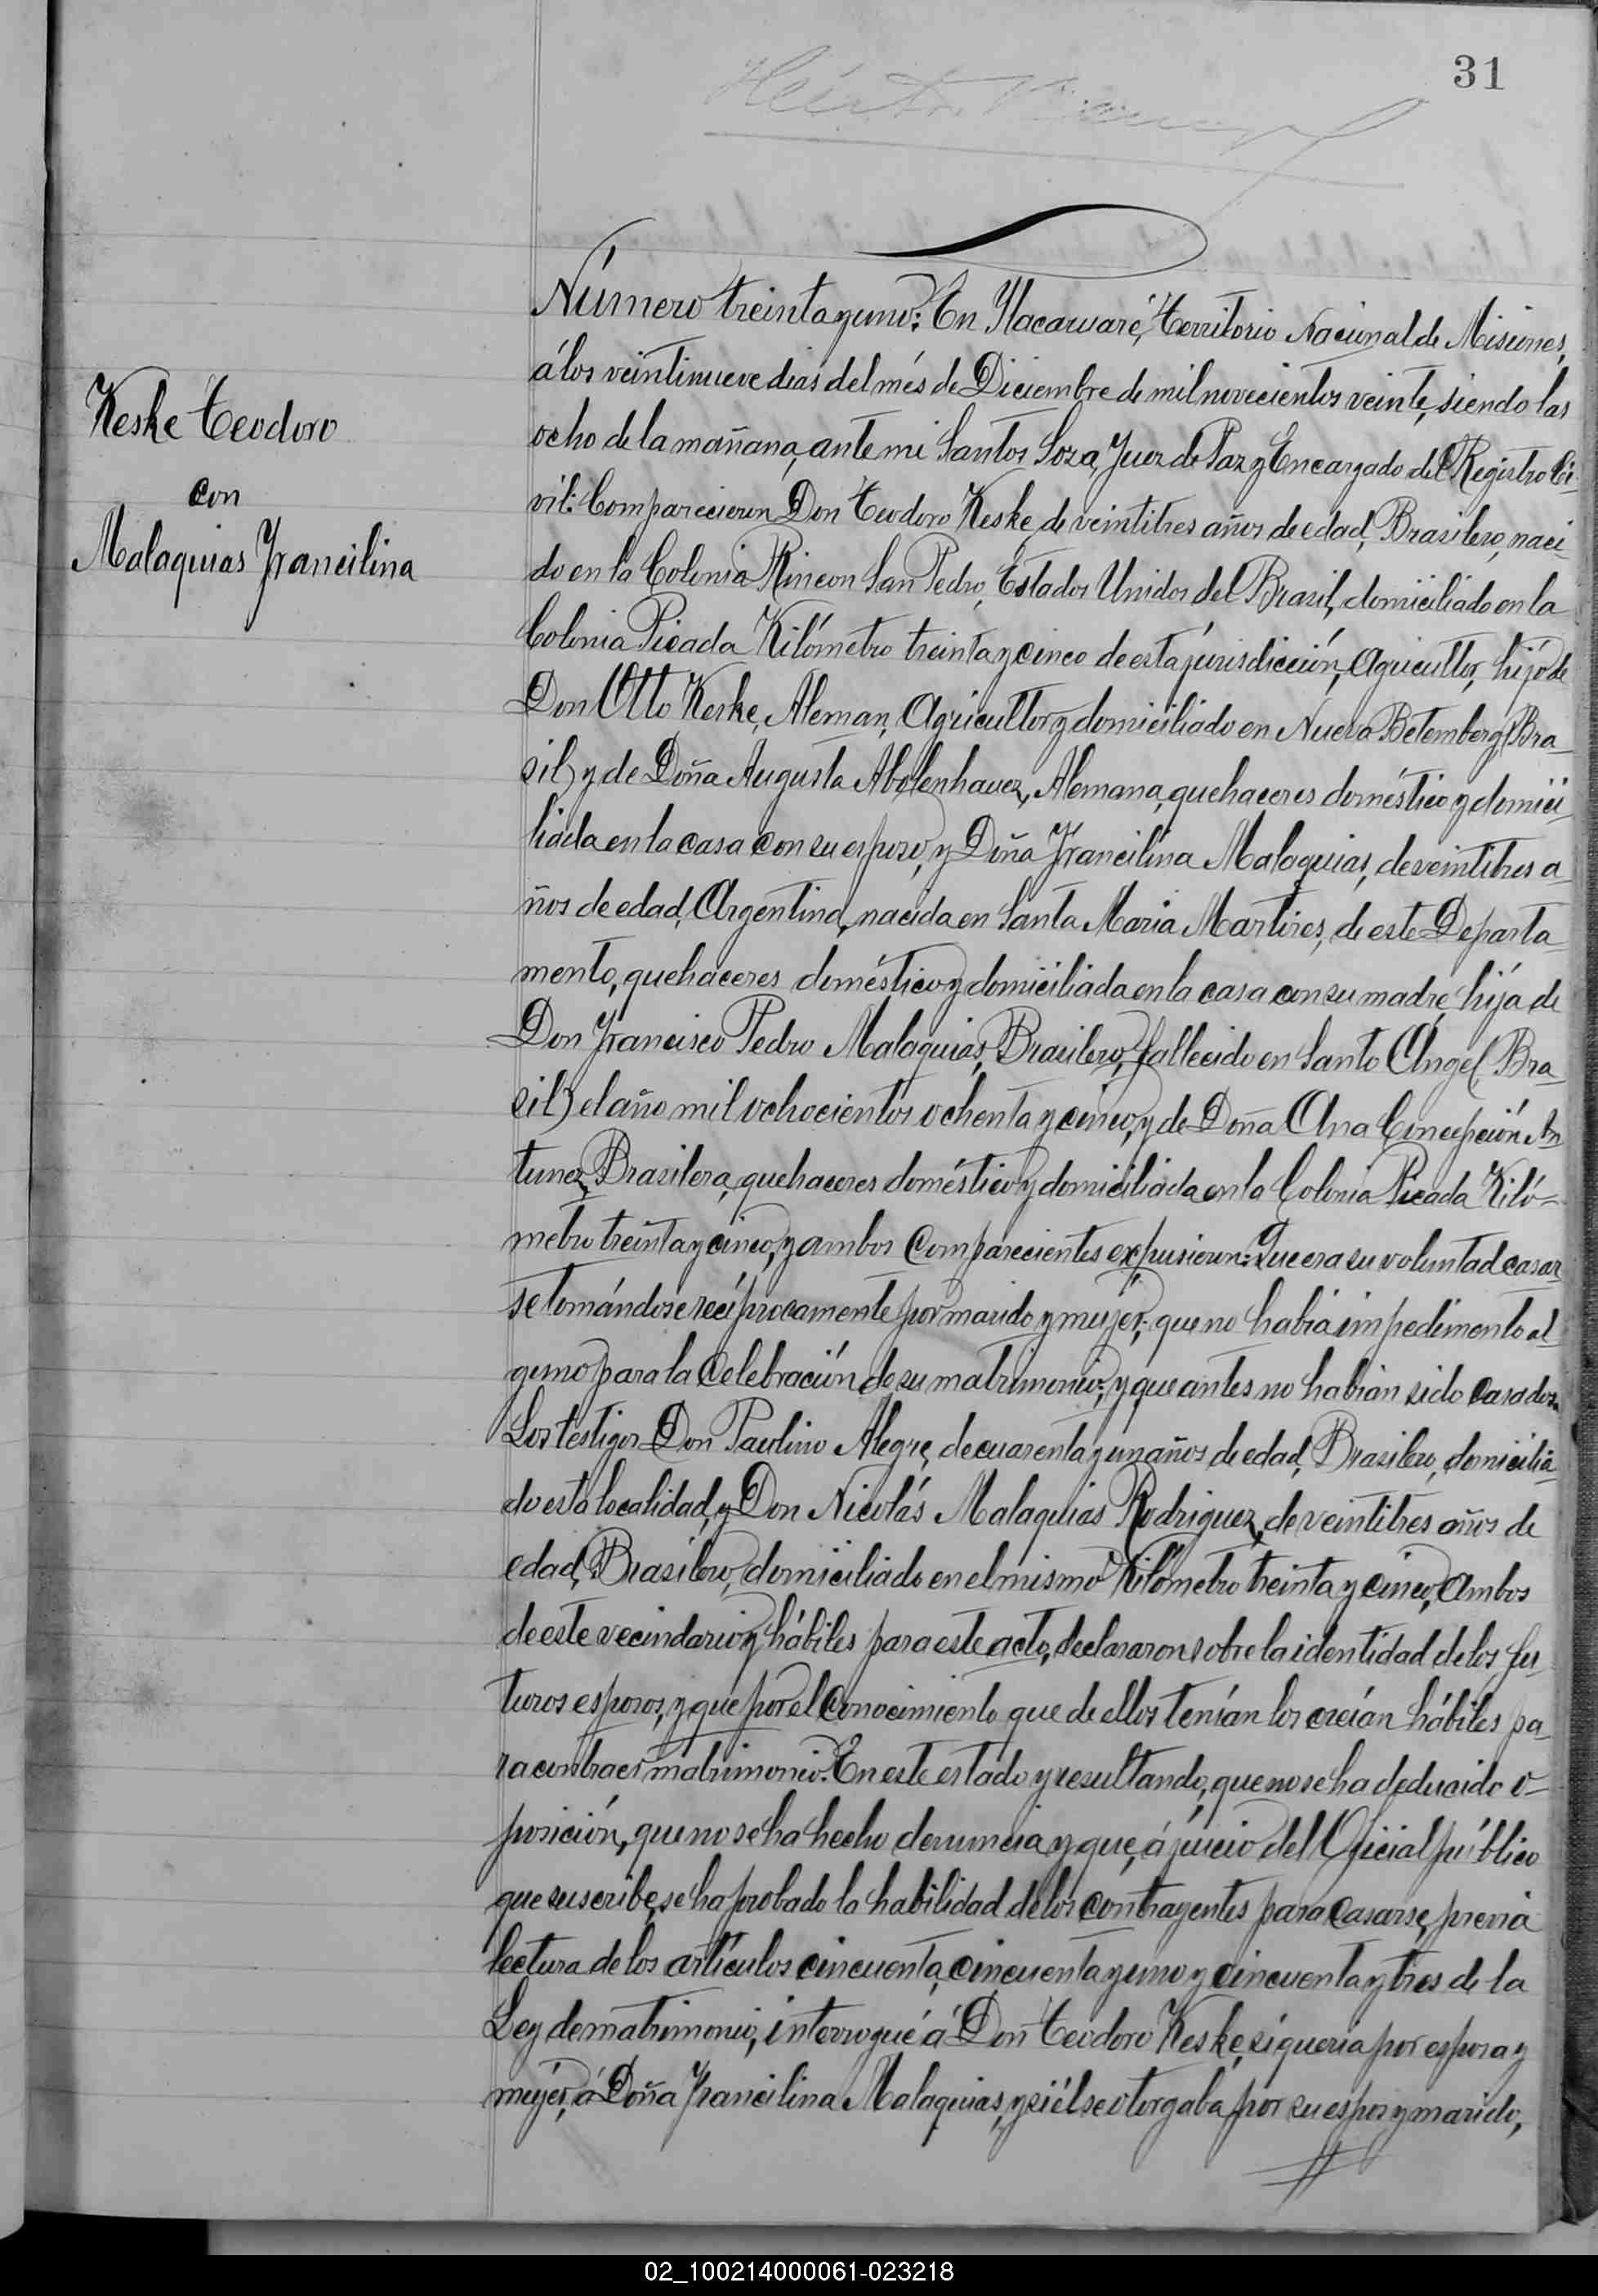 31
Keske Teodoro
con
Malaquias Francilina
Número treinta y uno: En Itacaruaré, Territorio Nacional de Misiones,
á los veintinueve dias del més de Diciembre de mil novecientos veinte, siendo las
ocho de la mañana, ante mi Santos Soza, Juez de Paz y Encargado del Registro Ci-
vil: Comparecieron Don Teodoro Keske, de veintitres años de edad, Brasilero, naci-
do en la Colonia Rincon San Pedro, Estados Unidos del Brasil, domiciliado en la
Colonia Picada Kilómetro treinta y cinco de esta jurisdicción, Agricultor, hijo de
Don Otto Keske, Aleman, Agricultor y domiciliado en Nueva Betemberg (Bra-
sil) y de Doña Augusta Abolenhauez, Alemana, quehaceres doméstico y domici-
liada en la casa con su esposo, y Doña Francilina Malaquias, de veintitres a-
ños de edad, Argentina, nacida en Santa Maria Martires, de este Departa-
mento, quehaceres doméstico y domiciliada en la casa con su madre, hija de
Don Francisco Pedro Malaquias, Brasilero, fallecido en Santo Ángel (Bra-
sil) el año mil ochocientos ochenta y cinco, y de Doña Ana Concepción An-
tunez, Brasilera, quehaceres doméstico y domiciliada en la Colonia Picada Kiló-
metro treinta y cinco, y ambos comparecientes expusieron: Que era su voluntad casar-
se tomándose recíprocamente por marido y mujer; que no habia impedimento al-
guno para la celebración de su matrimonio; y que antes no habian sido casados.
Los testigos Don Paulino Alegre, de cuarenta y un años de edad, Brasilero, domicilia-
do esta localidad, y Don Nicolás Malaquias Rodriguez, de veintitres años de
edad, Brasilero, domiciliado en el mismo Kilómetro treinta y cinco, ambos
de este vecindario y hábiles para este acto, declararon sobre la identidad de los fu-
turos esposos, y que por el conocimiento que de ellos tenían los creían hábiles pa-
ra contraer matrimonio. En este estado y resultando, que no se ha deducido o-
posición, que no se ha hecho denuncia y que, á juicio del Oficial público
que suscribe, se ha probado la habilidad de los contrayentes para casarse, previa
lectura de los artículos cincuenta, cincuenta y uno y cincuenta y tres de la
Ley de matrimonio, interrogué á Don Teodoro Keske, si queria por esposa y
mujer, á Doña Francilina Malaquias, y si él se otorgaba por su esposo y marido,
02_100214000061-023218